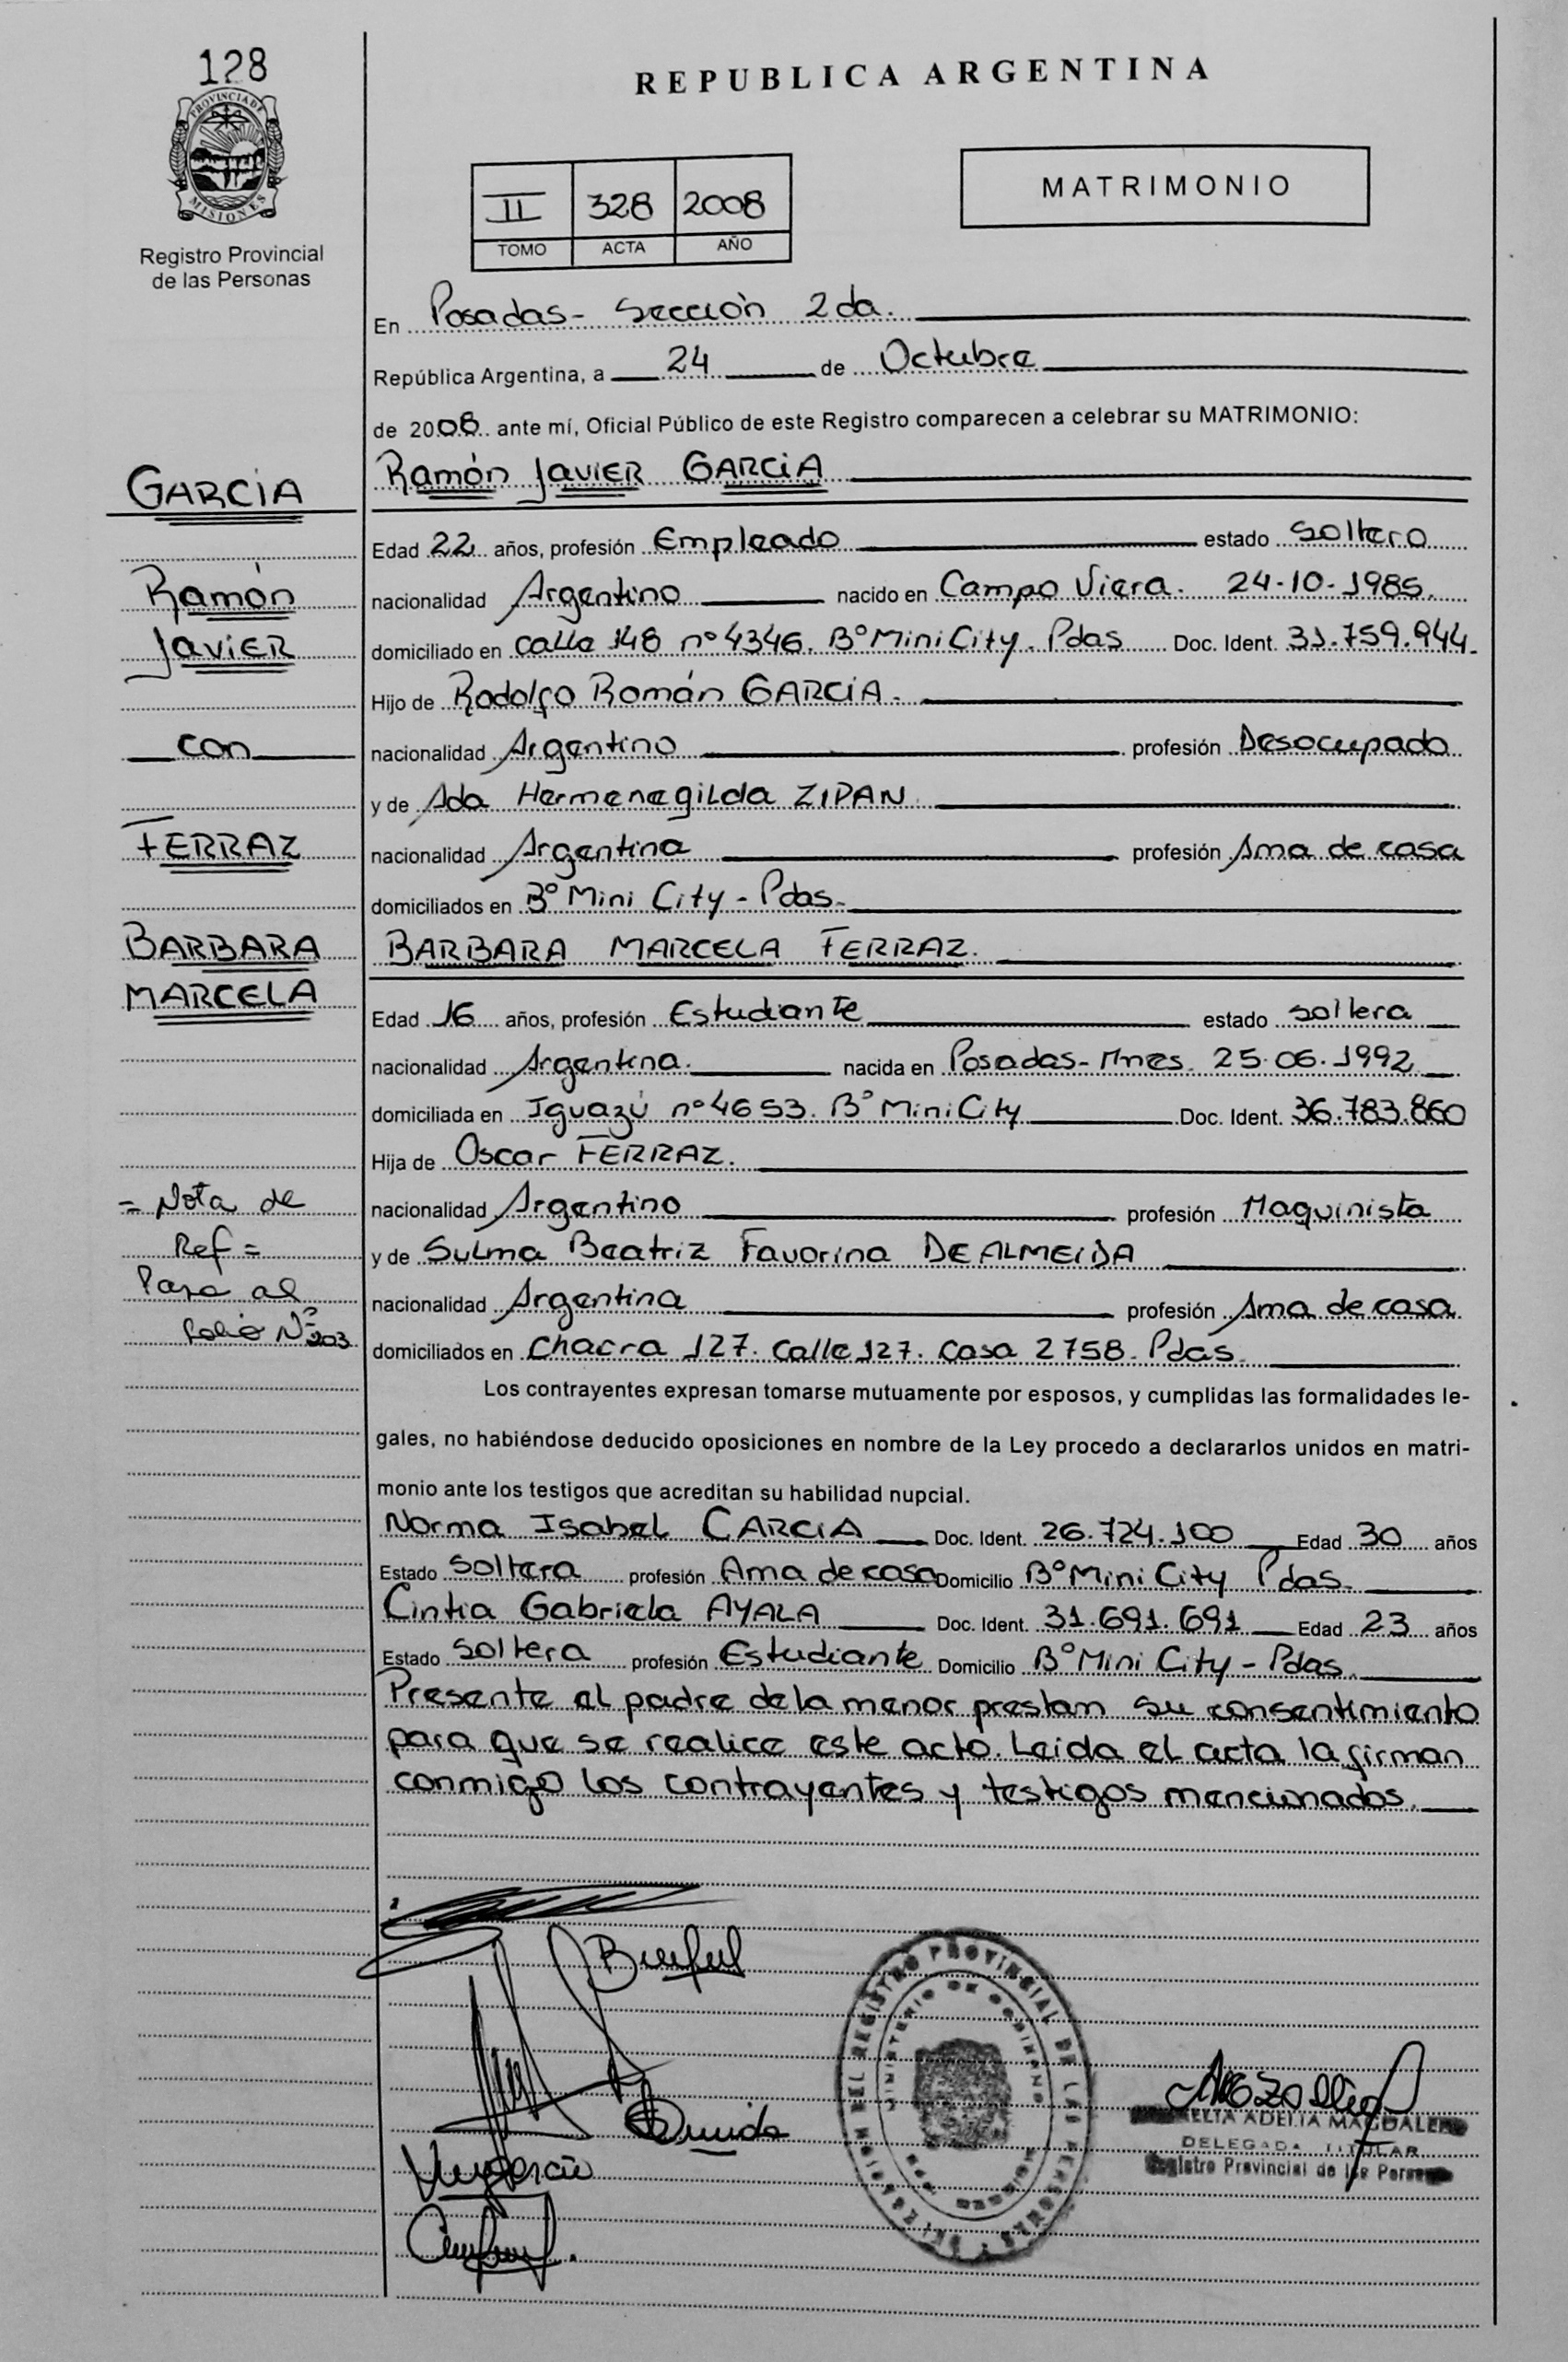 128
PROVINCIA DE
MISIONES
Registro Provincial
de las Personas
REPUBLICA ARGENTINA
II 328 2008
TOMO ACTA AÑO
MATRIMONIO
En Posadas- Sección 2da.
República Argentina, a 24 de Octubre
de 2008 ante mí, Oficial Público de este Registro comparecen a celebrar su MATRIMONIO:
GARCIA
Ramón Javier GARCIA
Edad 22 años, profesión Empleado estado soltero
Ramón
nacionalidad Argentino nacido en Campo Viera. 24-10-1985.
Javier
domiciliado en calle 148 nº 4346. Bº Mini City. Pdas Doc. Ident. 31.759.944.
Hijo de Rodolfo Román GARCIA.
con
nacionalidad Argentino profesión Desocupado
y de Ada Hermenegilda ZIPAN
FERRAZ
nacionalidad Argentina profesión Ama de casa
domiciliados en Bº Mini City - Pdas.
BARBARA
BARBARA MARCELA FERRAZ.
MARCELA
Edad 16 años, profesión Estudiante estado soltera
nacionalidad Argentina. nacida en Posadas- Mnes. 25.06.1992
domiciliada en Iguazú nº 4653. Bº Mini City Doc. Ident. 36.783.860
Hija de Oscar FERRAZ.
= Nota de
nacionalidad Argentino profesión Maquinista
Ref =
y de Sulma Beatriz Favorina DE ALMEIDA
Pasa al
nacionalidad Argentina profesión Ama de casa.
folio Nº 203
domiciliados en Chacra 127. Calle 127. Casa 2758. Pdas.
Los contrayentes expresan tomarse mutuamente por esposos, y cumplidas las formalidades le-
gales, no habiéndose deducido oposiciones en nombre de la Ley procedo a declararlos unidos en matri-
monio ante los testigos que acreditan su habilidad nupcial.
Norma Isabel GARCIA Doc. Ident. 26.724.100 Edad 30 años
Estado soltera profesión Ama de casa Domicilio Bº Mini City Pdas.
Cintia Gabriela AYALA Doc. Ident. 31.691.691 Edad 23 años
Estado soltera profesión Estudiante Domicilio Bº Mini City - Pdas.
Presente el padre de la menor prestan su consentimiento
para que se realice este acto. Leida el acta la firman
conmigo los contrayentes y testigos mencionados.
REGISTRO PROVINCIAL DE LAS PERSONAS
MINISTERIO DE GOBIERNO
ADELIA MAGDALENA
DELEGADA TITULAR
Registro Provincial de las Personas